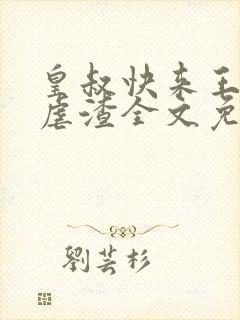 皇叔快来王
虐渣全文免
劉芸杉